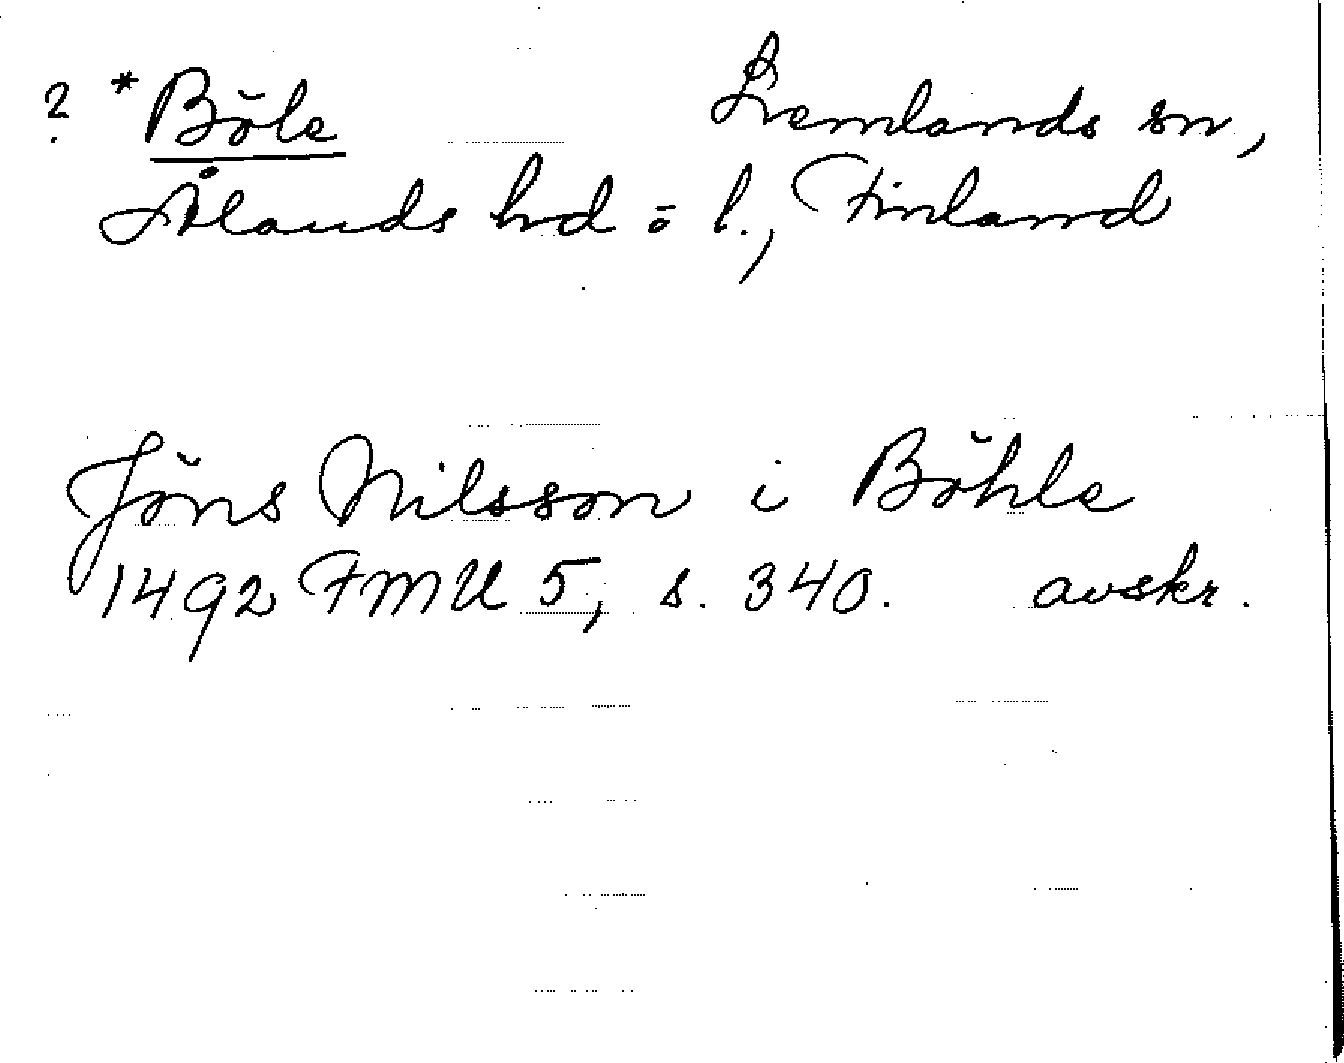 ? *Böle Lemlands sn,
Ålands hd o l., Finland
Jöns Nilsson i Böhle
1492 FMU 5, s. 340. avskr.